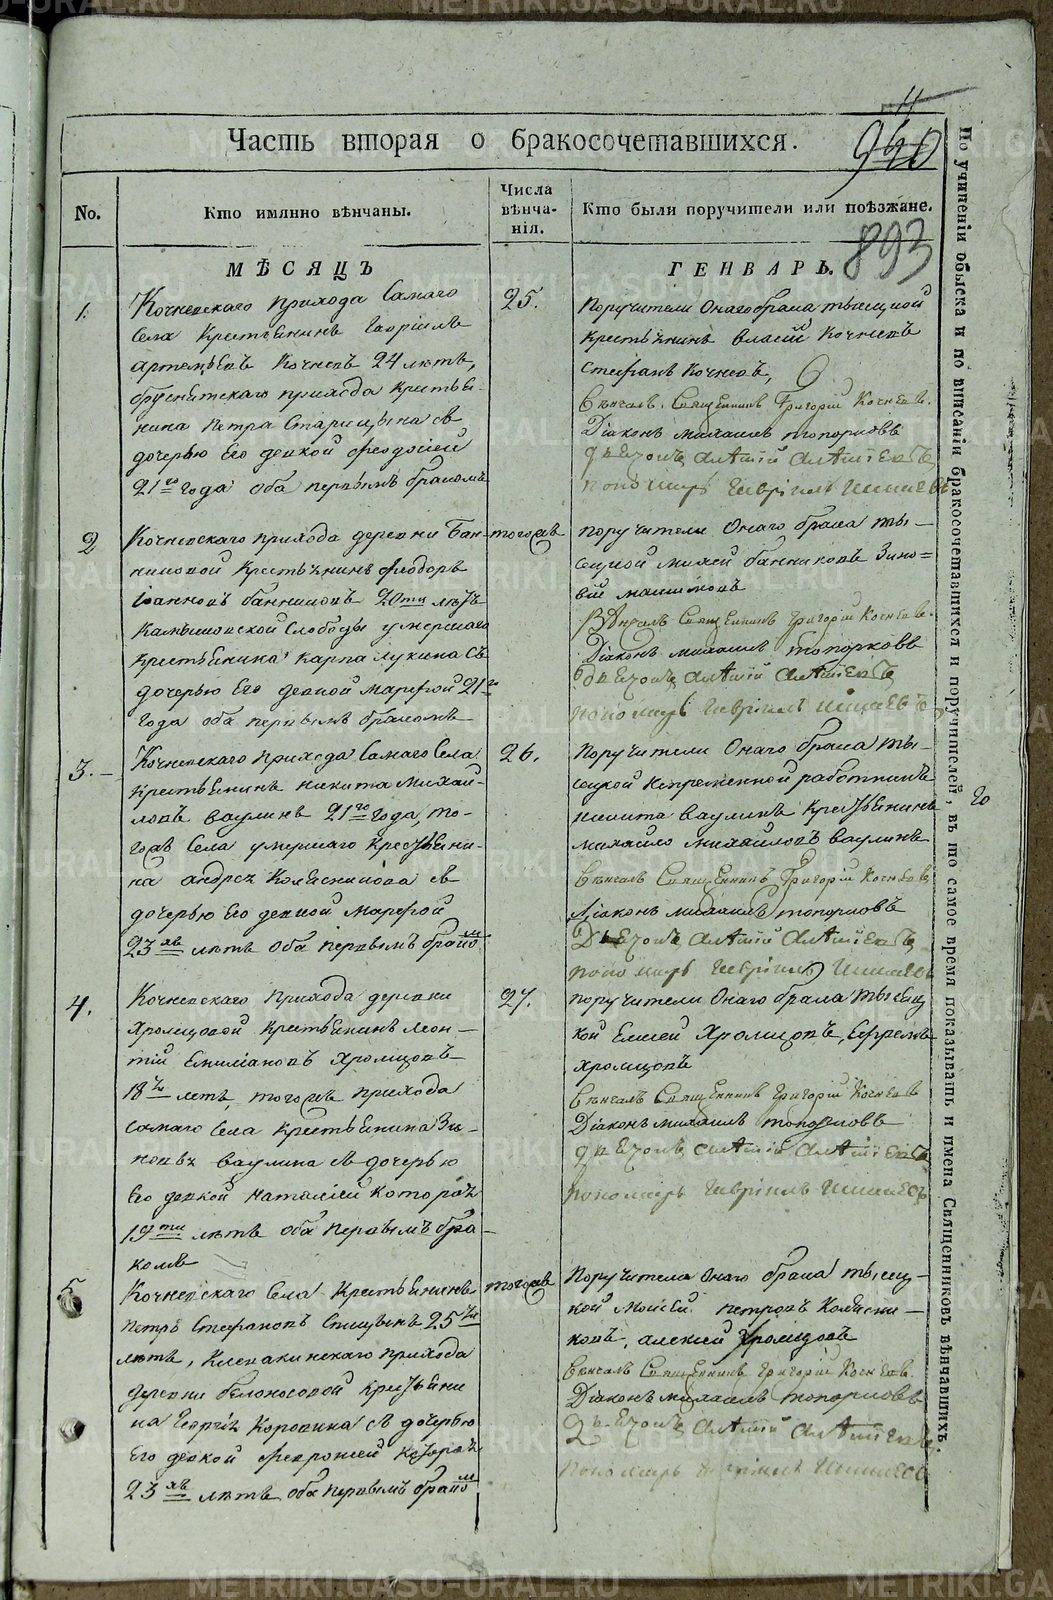 Часть вторая о бракосочетавшихся.
940
893
No.
Кто имянно вѣнчаны.
Числа
вѣнча-
нія.
Кто были поручители или поѣзжане.
МѢСЯЦЪ
ГЕНВАРЬ.
1.
Кочневскаго прихода Самаго
села Крестьянинъ Гавріилъ
Артемьевъ Кочневъ 24 лѣтъ,
Бруснятскаго прихода Крестья-
нина Петра Старицына съ
дочерью Его девкой Феодосіей
21го года оба первымъ бракомъ
25.
Поручители Онаго брака тысяцкой
Крестьянинъ Власій Кочневъ
Стефанъ Кочневъ,
Вѣнчалъ Священникъ Григорій Кочневъ.
Діаконъ Михаилъ Топорковъ
Дьячокъ
Пономарь Гавріилъ
2
Кочневскаго прихода деревни Бан-
никовой Крестьянинъ Феодоръ
Іоанновъ Банниковъ 20ти лѣтъ
Камышловской Слободы умершаго
Крестьянина Карпа Лукина съ
дочерью Его девкой Марфой 21го
года оба первымъ бракомъ
тогожъ
Поручители Онаго брака ты-
сяцкой Банниковъ Зино-
вій
Вѣнчалъ Священникъ Григорій Кочневъ.
Діаконъ Михаилъ Топорковъ
Дьячокъ
Пономарь Гавріилъ
3.
Кочневскаго прихода Самаго Села
Крестьянинъ Никита Михай-
ловъ Ваулинъ 21го года, то-
гожъ Села умершаго Крестьяни-
на Андрея Колясникова съ
дочерью Его девкой Марфой
23хъ лѣтъ оба первымъ бракомъ
26.
Поручители Онаго брака ты-
сяцкой работникъ
Никита Ваулинъ Крестьянинъ
Михайло Михайловъ Ваулинъ
Вѣнчалъ Священникъ Григорій Кочневъ
Діаконъ Михаилъ Топорковъ
Дьячокъ
Пономарь Гавріилъ
4.
Кочневскаго Прихода деревни
Хромцовой Крестьянинъ Леон-
тій Хромцовъ
18ти летъ, тогожъ прихода
самаго Села Крестьянина Зи-
новья Ваулина съ дочерью
Его девкой Наталіей которая
19ти лѣтъ оба первымъ бра-
комъ
27.
Поручители Онаго брака тысяц-
кой Елисей Хромцовъ, Ефремъ
Хромцовъ
Вѣнчалъ Священникъ Григорій Кочневъ
Діаконъ Михаилъ Топорковъ
Дьячокъ
Пономарь Гавріилъ
5
Кочневскаго Села Крестьянинъ
Петръ Стефановъ Спицынъ 25ти
лѣтъ, Клевакинскаго прихода
деревни Белоносовой Крестьяни
на Георгія Коровина съ дочерью
Его девкой Февроніей которая
23хъ лѣтъ оба первымъ бракомъ
тогожъ
Поручители Онаго брака тысяц-
кой Моисей Петровъ Колясни-
ковъ, Алексей Хромцовъ
Вѣнчалъ Священникъ Григорій Кочневъ.
Діаконъ Михаилъ Топорковъ
Дьячокъ
Пономарь Гавріилъ
По учиненіи обыска и по вписаніи бракосочетавшихся и поручителей, въ то самое время показывать и имена Священниковъ вѣнчавшихъ.
METRIKI.GASO-URAL.RU